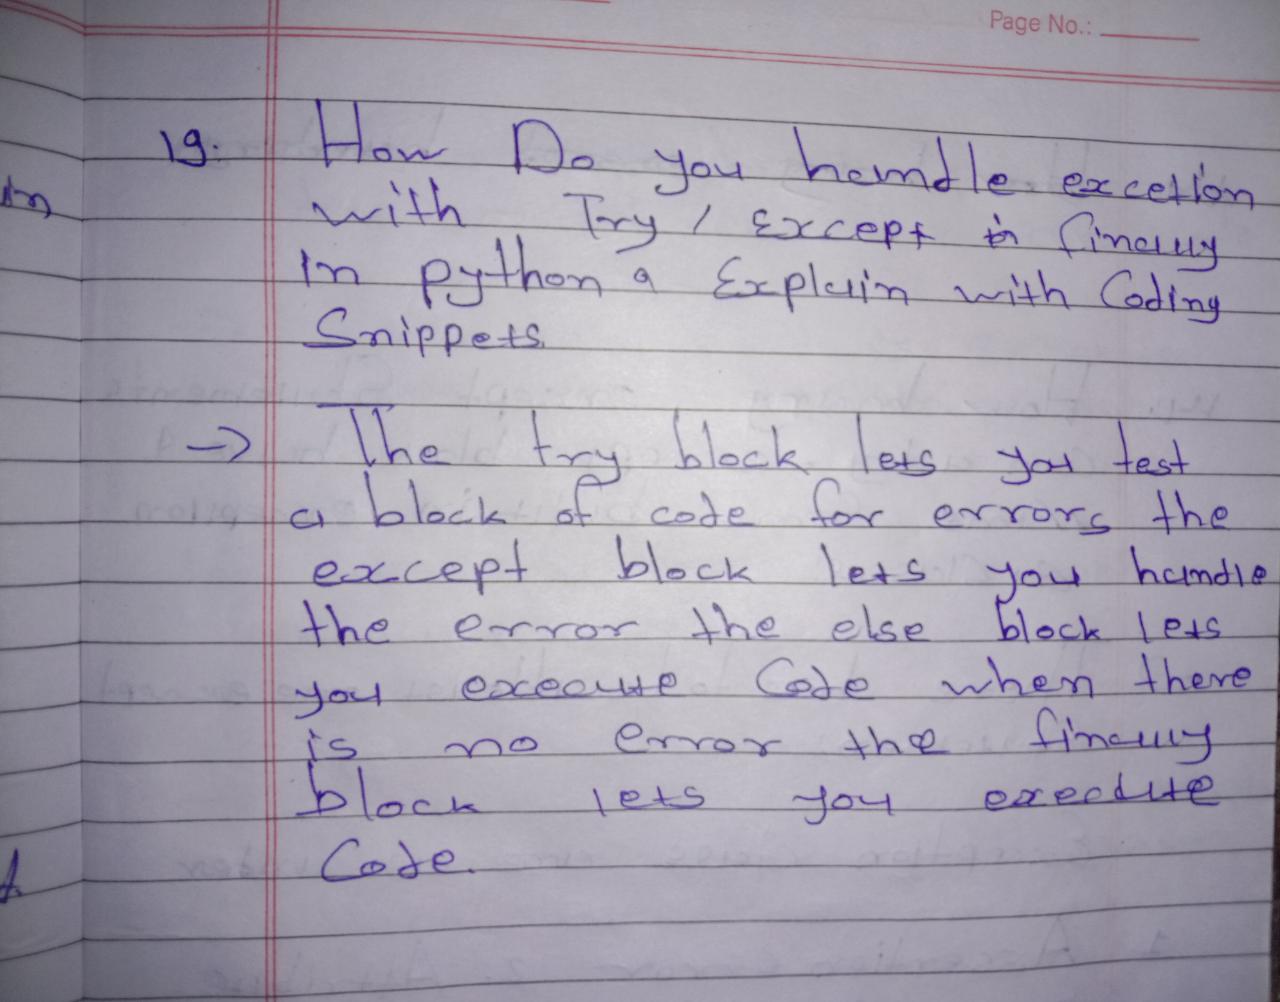 Page No.:
19. How Do you handle excetion
with Try / Except in finally
In python a Explain with Coding
Snippets.
→ The try block lets you test
a block of code for errors the
except block lets you handle
the error the else block lets
you execute Code when there
is no error the finally
block lets you execute
Code.